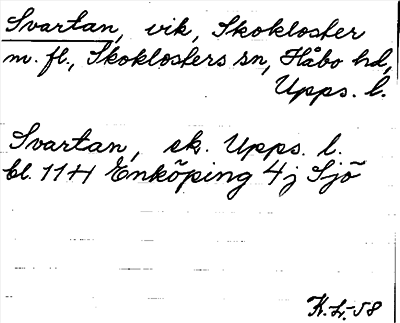 Svartan, vik, Skokloster
m. fl., Skoklosters sn, Håbo hd,
Upps. l.
Svartan, ek. Upps. l.
bl. 11H Enköping 4j Sjö
K.L-58